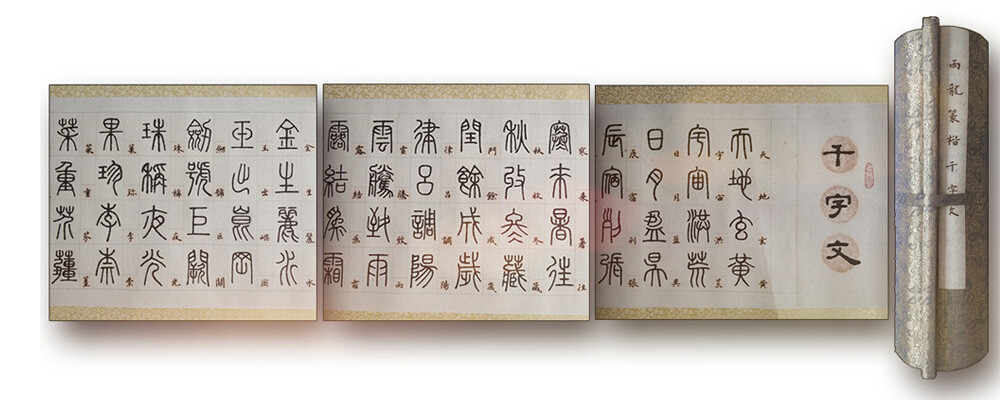 雨龍篆楷千字文
千字文
天地玄黃
宇宙洪荒
日月盈昃
辰宿列張
寒來暑往
秋收冬藏
閏餘成歲
律呂調陽
雲騰致雨
露結為霜
金生麗水
玉出崑岡
劍號巨闕
珠稱夜光
果珍李柰
菜重芥薑